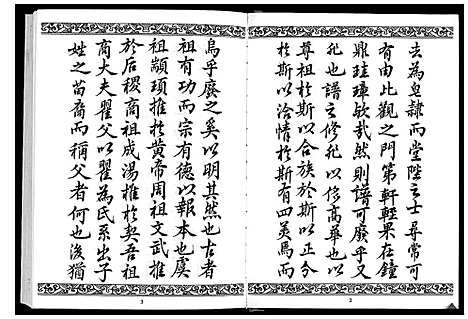 去為皂隷而堂陛之士尋常可
有由此觀之門第軒輊果在鐘
鼎珪璋欤哉然則譜可廢乎又
非也譜之修非以侈高華也以
尊祖於斯以合族於斯以正分
於斯以洽情於斯有四美焉而
2
烏乎廢之奚以明其然也古者
祖有功而宗有德以報本也虞
祖顓頊推於黄帝周祖文武推
於后稷商祖成湯推於契吾祖
商大夫翟父以翟為氏系出子
姓之苗裔而稱父者何也後猶
3